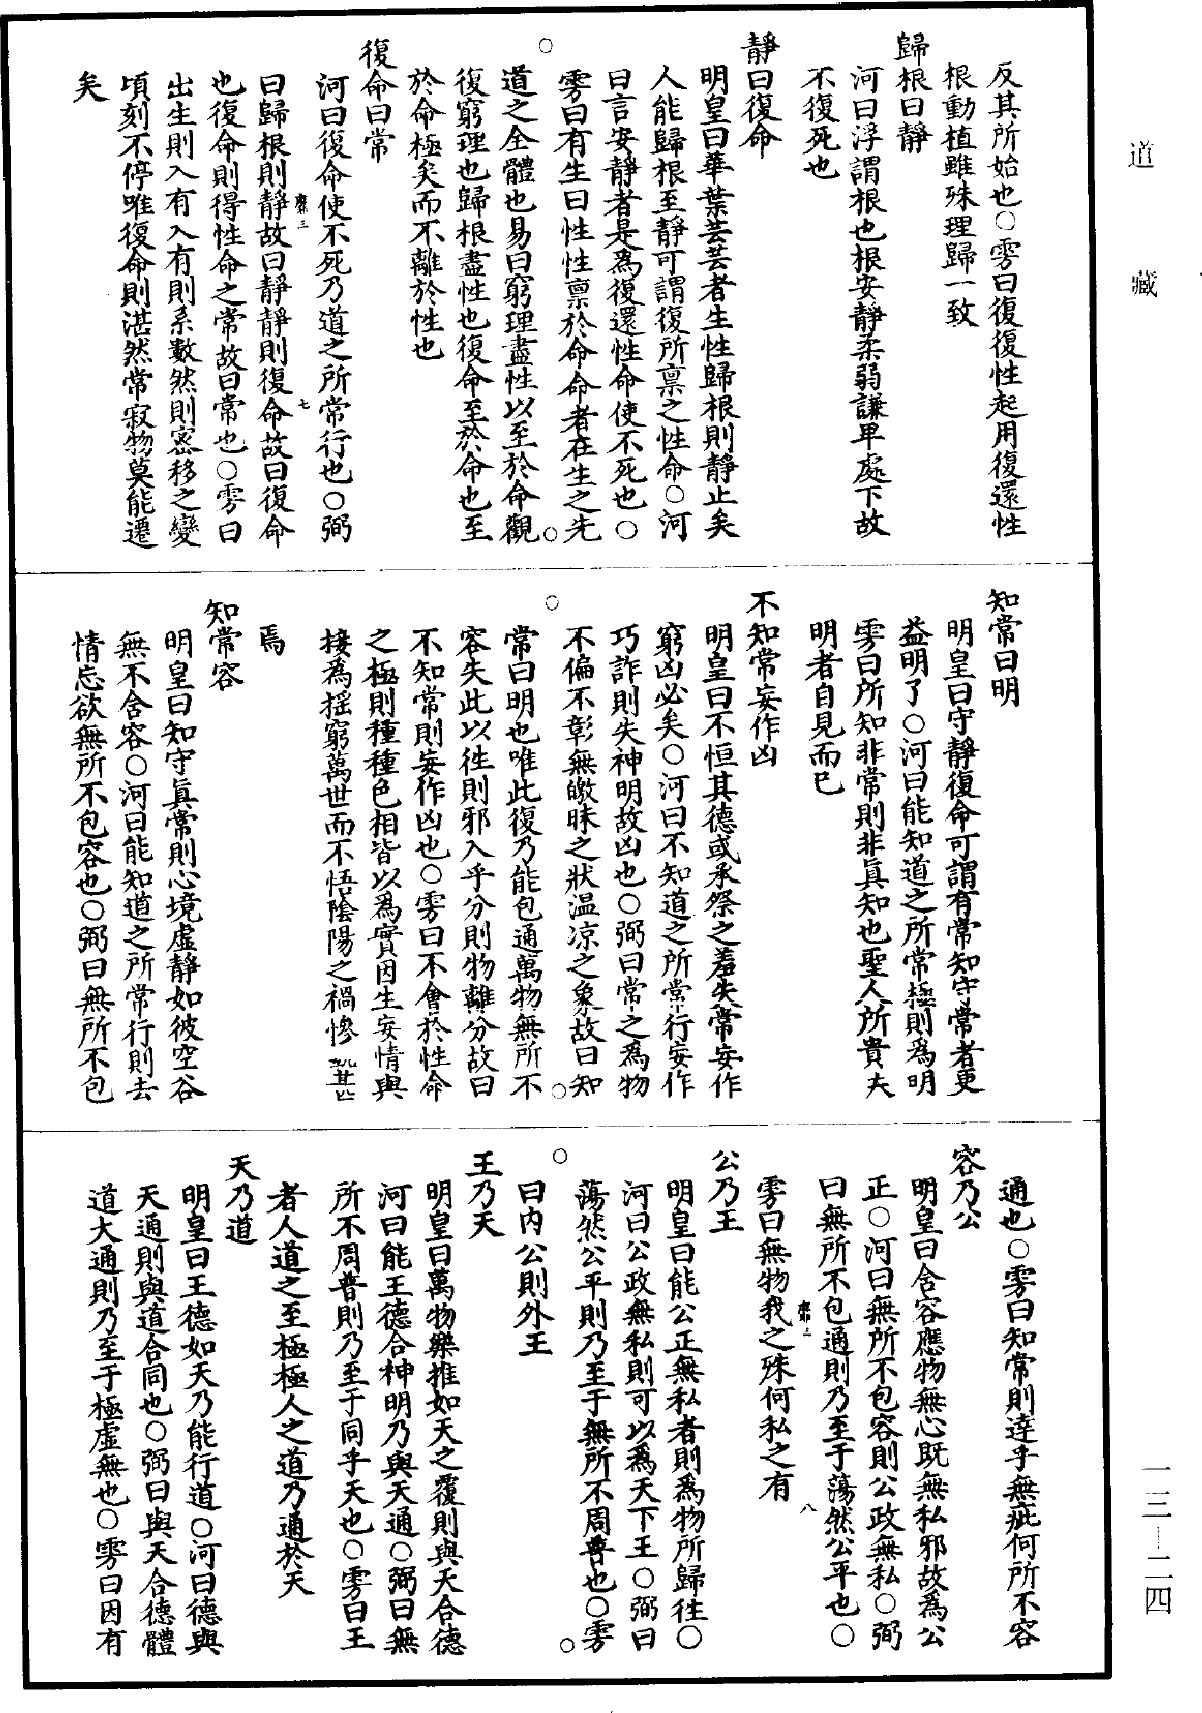 道藏
反其所始也○雱曰復復性起用復還性
根動植雖殊理歸一致
歸根曰靜
河曰浮謂根也根安靜柔弱謙卑處下故
不復死也
靜曰復命
明皇曰華葉芸芸者生性歸根則靜止矣
人能歸根至靜可謂復所禀之性命○河
曰言安靜者是爲復還性命使不死也○
雱曰有生曰性性禀於命命者在生之先
道之全體也易曰窮理盡性以至於命觀
復窮理也歸根盡性也復命至於命也至
於命極矣而不離於性也
復命曰常
河曰復命使不死乃道之所常行也○弼
曰歸根則靜故曰靜靜則復命故曰復命
也復命則得性命之常故曰常也○雱曰
出生則入有入有則系數然則密移之變
頃刻不停唯復命則湛然常寂物莫能遷
矣
知常曰明
明皇曰守靜復命可謂有常知守常者更
益明了○河曰能知道之所常極則爲明
雱曰所知非常則非眞知也聖人所貴夫
明者自見而已
不知常妄作凶
明皇曰不恒其德或承祭之羞失常妄作
窮凶必矣○河曰不知道之所常行妄作
巧詐則失神明故凶也○弼曰常之爲物
不偏不彰無皦昧之狀温凉之象故曰知
常曰明也唯此復乃能包通萬物無所不
容失此以徃則邪入乎分則物離分故曰
不知常則妄作凶也○雱曰不會於性命
之極則種種色相皆以爲實因生妄情與
接爲搖窮萬世而不悟陰陽之禍慘
焉
知常容
明皇曰知守眞常則心境虛靜如彼空谷
無不含容○河曰能知道之所常行則去
情忘欲無所不包容也○弼曰無所不包
通也○雱曰知常則達乎無疵何所不容
容乃公
明皇曰含容應物無心既無私邪故爲公
正○河曰無所不包容則公政無私○弼
曰無所不包通則乃至于蕩然公平也○
雱曰無物我之殊何私之有
公乃王
明皇曰能公正無私者則爲物所歸徃○
河曰公政無私則可以爲天下王○弼曰
蕩然公平則乃至于無所不周普也○雱
曰内公則外王
王乃天
明皇曰萬物樂推如天之覆則與天合德
河曰能王德合神明乃與天通○弼曰無
所不周普則乃至于同乎天也○雱曰王
者人道之至極極人之道乃通於天
天乃道
明皇曰王德如天乃能行道○河曰德與
天通則與道合同也○弼曰與天合德體
道大通則乃至于極虛無也○雱曰因有
一三—二四